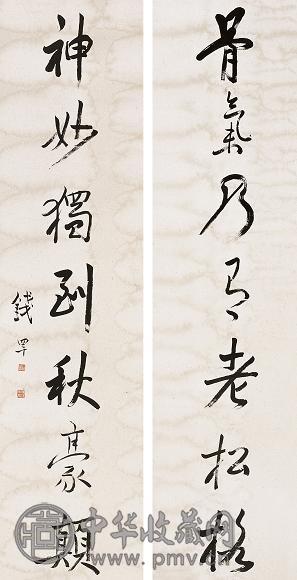 骨氣乃有老松格
神妙獨到秋豪顛
錢罕
中华收藏网
www.pmv.cn